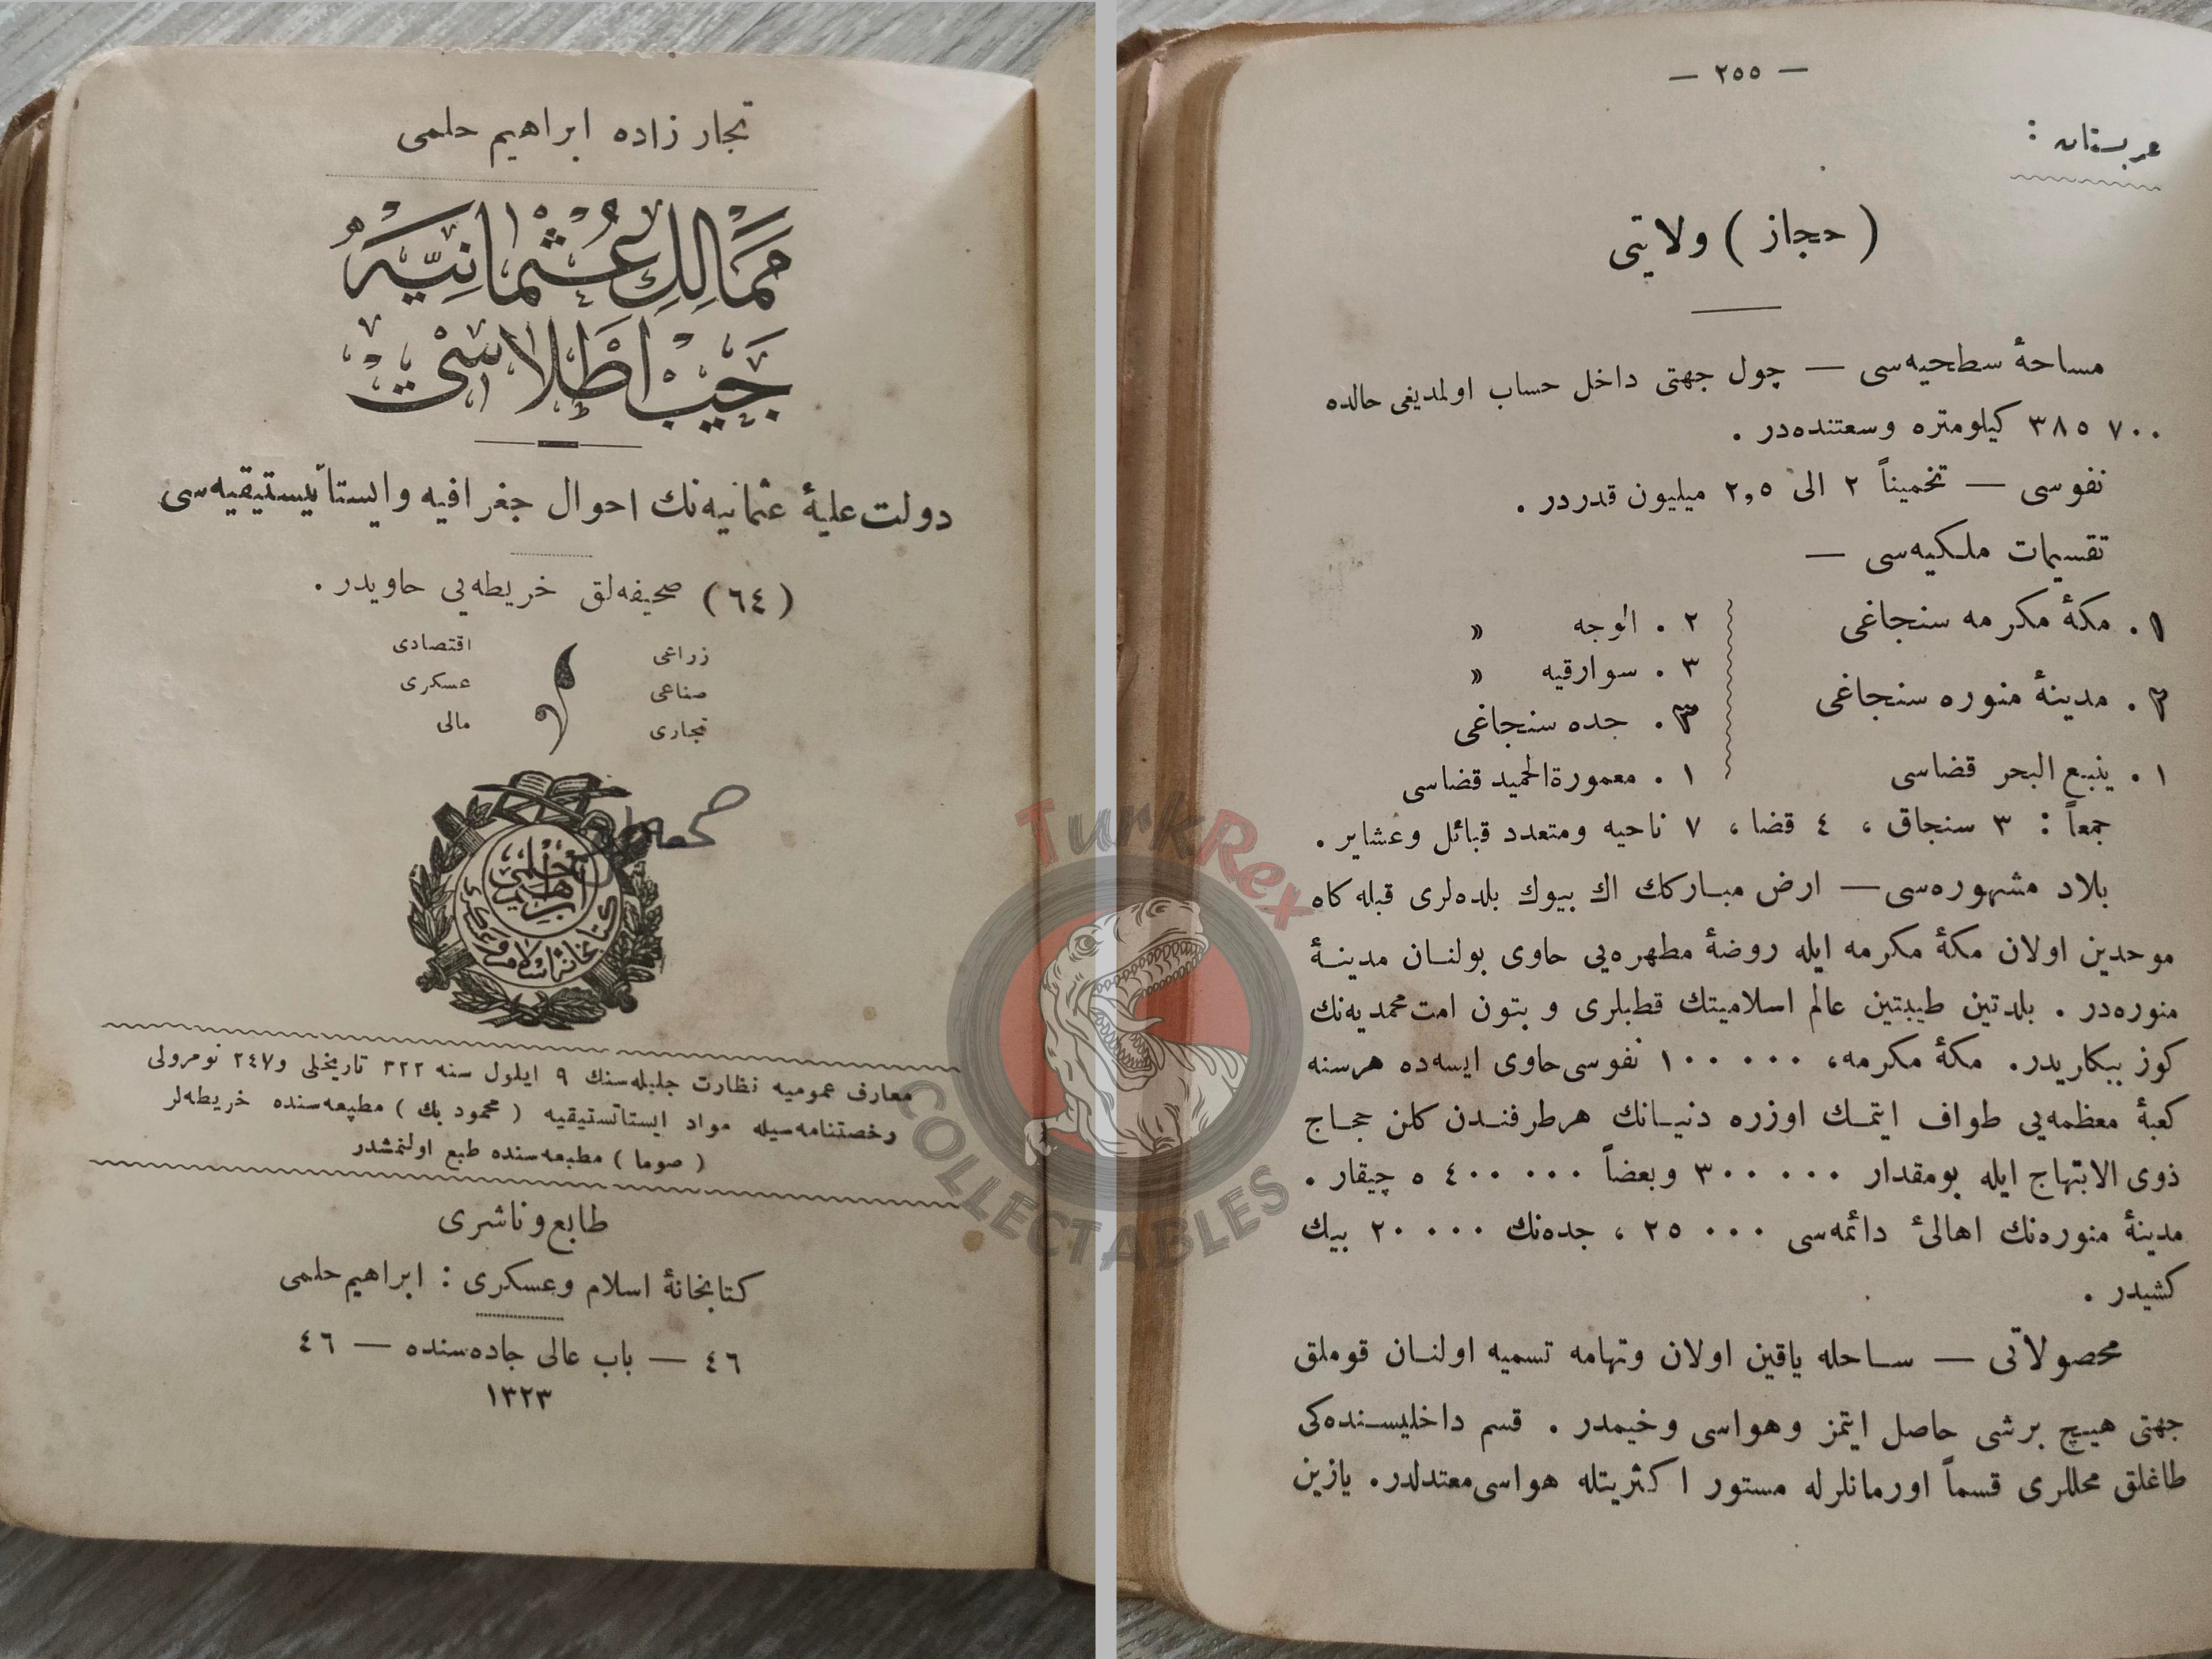 تجار زاده ابراهيم حلمى
مَمَالِكِ عُثْمَانِيَّه
جَيْب اَطْلاسى
دولت عليهٔ عثمانيه‌نك احوال جغرافيه وايستاتيستيقيه‌سى
(٦٤) صحيفه‌لق خريطه‌يى حاويدر .
زراعى اقتصادى
صناعى عسكرى
تجارى مالى
ابراهيم حلمى
كتابخانهٔ اسلام وعسكرى
معارف عموميه نظارت جليله‌سنك ٩ ايلول سنه ٣٢٢ تاريخلى و٢٤٧ نومرولى
رخصتنامه‌سيله مواد ايستاتستيقيه (محمود بك) مطبعه‌سنده خريطه‌لر
(صوما) مطبعه‌سنده طبع اولنمشدر
طابع وناشرى
كتابخانهٔ اسلام وعسكرى : ابراهيم حلمى
٤٦ — باب عالى جاده‌سنده — ٤٦
١٣٢٣
— ٢٥٥ —
عربستان :
(حجاز) ولايتى
مساحهٔ سطحيه‌سى — چول جهتى داخل حساب اولمديغى حالده
٣٨٥٧٠٠ كيلومتره وسعتنده‌در .
نفوسى — تخميناً ٢ الى ٢,٥ ميليون قدردر .
تقسيمات ملكيه‌سى —
١. مكهٔ مكرمه سنجاغى
٢. مدينهٔ منوره سنجاغى
١. ينبع البحر قضاسى
٢. الوجه »
٣. سوارقيه »
٣. جده سنجاغى
١. معمورةالحميد قضاسى
جمعاً : ٣ سنجاق ، ٤ قضا ، ٧ ناحيه ومتعدد قبائل وعشاير .
بلاد مشهوره‌سى — ارض مباركك اك بيوك بلده‌لرى قبله كاه
موحدين اولان مكهٔ مكرمه ايله روضهٔ مطهره‌يى حاوى بولنان مدينهٔ
منوره‌در . بلدتين طيبتين عالم اسلاميتك قطبلرى و بتون امت محمديه‌نك
كوز ببكاريدر. مكهٔ مكرمه، ١٠٠٠٠٠ نفوسى حاوى ايسه‌ده هرسنه
كعبهٔ معظمه‌يى طواف ايتمك اوزره دنيانك هرطرفندن كلن حجاج
ذوى الابتهاج ايله بومقدار ٣٠٠٠٠٠ وبعضاً ٤٠٠٠٠٠ ه چيقار .
مدينهٔ منوره‌نك اهالئ دائمه‌سى ٢٥٠٠٠ ، جده‌نك ٢٠٠٠٠ بيك
كشيدر .
محصولاتى — ساحله ياقين اولان وتهامه تسميه اولنان قوملق
جهتى هيچ برشى حاصل ايتمز وهواسى وخيمدر . قسم داخليسنده‌كى
طاغلق محللرى قسماً اورمانلرله مستور اكثريتله هواسى معتدلدر. يازين
TurkRex
COLLECTABLES